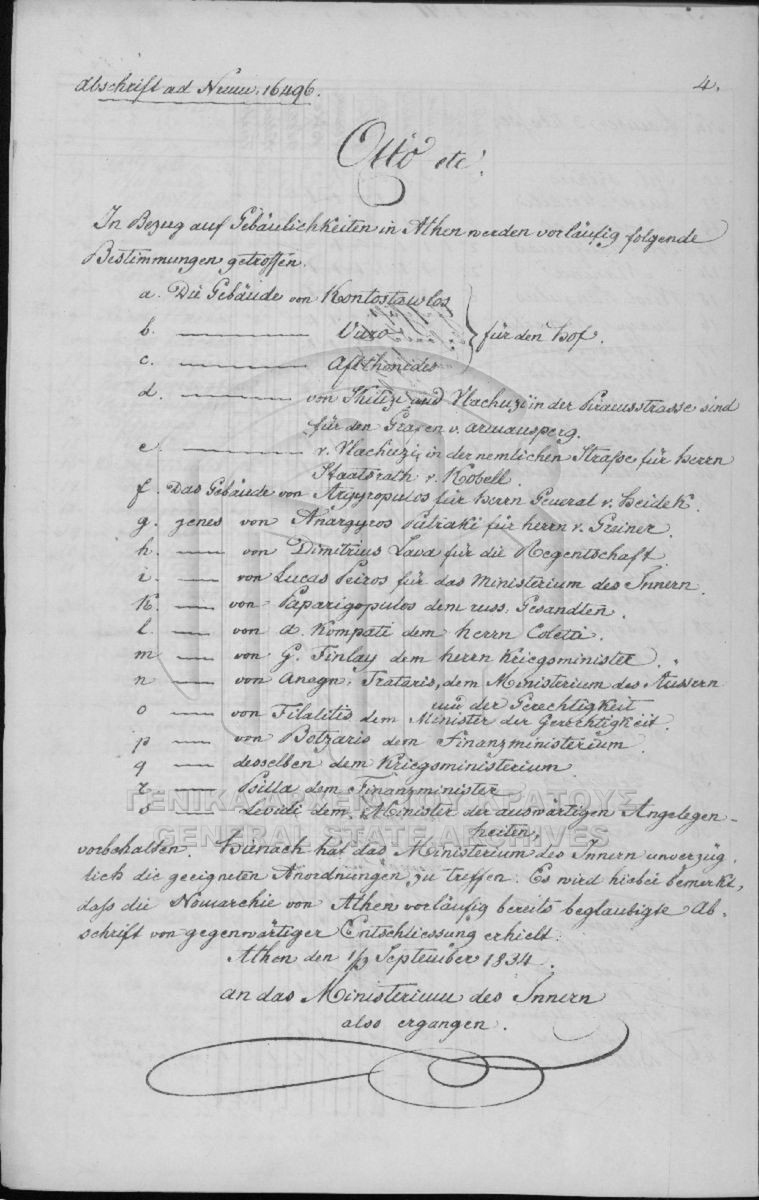 Abschrift ad Num. 16496.
4.
Otto etc.
In Bezug auf Gebäulichkeiten in Athen werden vorläufig folgende
Bestimmungen getroffen.
a. Die Gebäude von Kontostawlos
b. ——— Vitro
für den Hof.
c. ——— Afthonides
d. ——— von und Vlachuzi in der Piräusstrasse sind
für den Grafen v. Armansperg.
e. ——— v. Vlachuzi in der nemlichen Straße für Herrn
Staatsrath v. Kobell.
f. Das Gebäude von Argyropulos für Herrn General v. Heidek.
g. jenes von Anargyros Patraki für Herrn v. Greiner.
h. — von Dimitrius Lava für die Regentschaft.
i. — von Lucas Peiros für das Ministerium des Innern.
k. — von Paparigopulos dem russ. Gesandten.
l. — von A. Kompati dem Herrn Coletti.
m — von G. Finlay dem Herrn Kriegsminister.
n — von Anagn. Trataris, dem Ministerium des Äussern
und der Gerechtigkeit
o — von Filalitis dem Minister der Gerechtigkeit.
p — von Botzaris dem Finanzministerium.
q — desselben dem Kriegsministerium.
r. — Psilla dem Finanzminister
s — Levidi dem Minister der auswärtigen Angelegen-
heiten,
vorbehalten. Hiernach hat das Ministerium des Innern unverzüg-
lich die geeigneten Anordnungen zu treffen. Es wird hiebei bemerkt,
daß die Nomarchie von Athen vorläufig bereits beglaubigte Ab-
schrift von gegenwärtiger Entschliessung erhielt.
Athen den 1/13 September 1834.
An das Ministerium des Innern
also ergangen.
ΓΕΝΙΚΑ ΑΡΧΕΙΑ ΤΟΥ ΚΡΑΤΟΥΣ
GENERAL STATE ARCHIVES